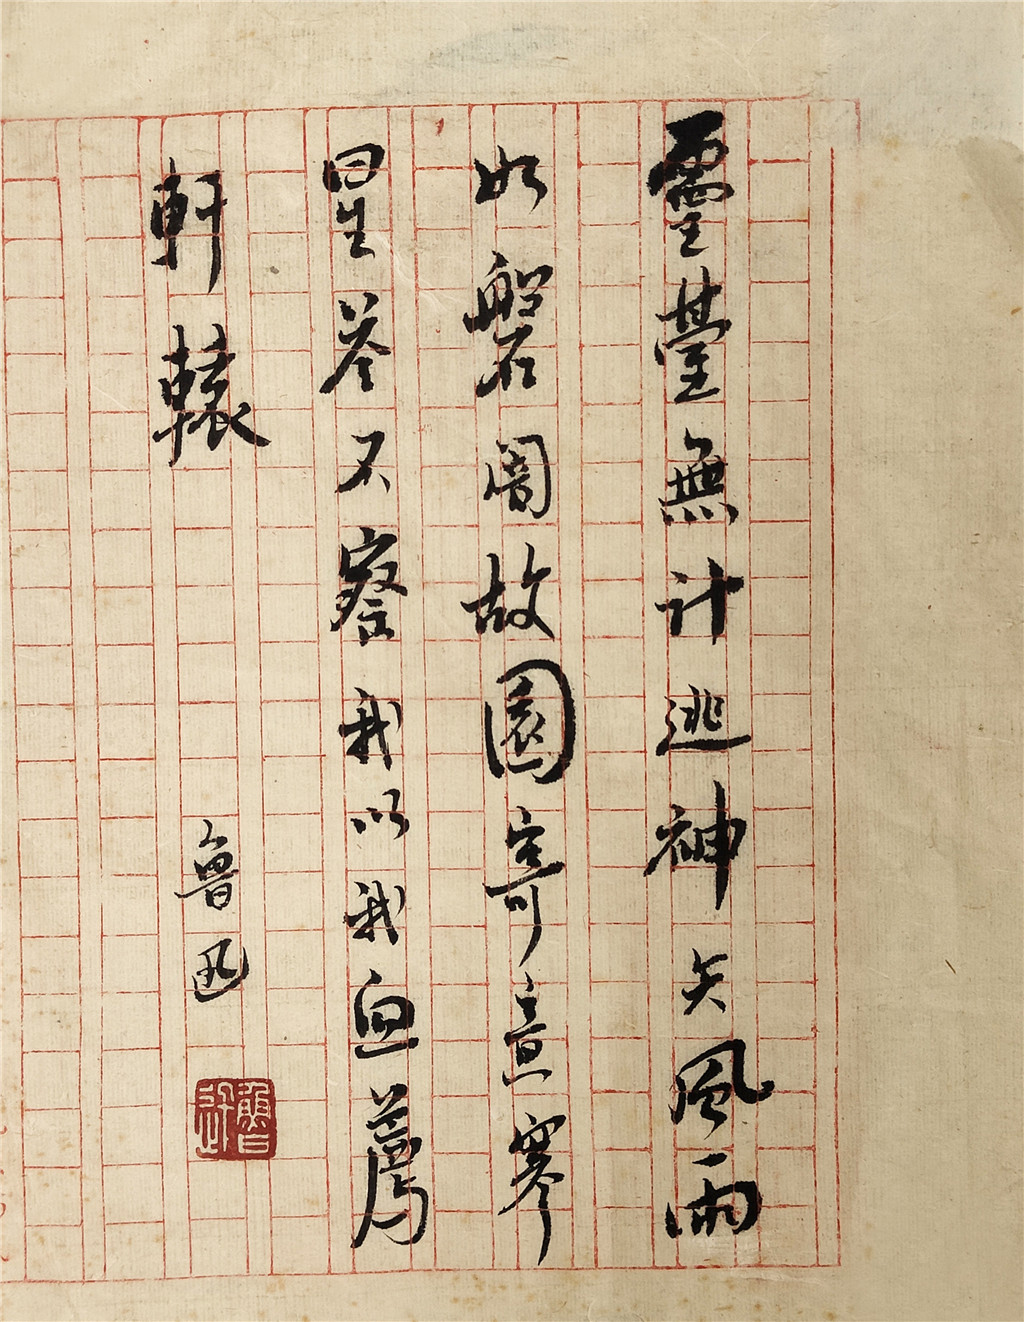 靈臺無計逃神矢風雨
如磐闇故園寄意寒
星荃不察我以我血薦
軒轅
魯迅
魯迅